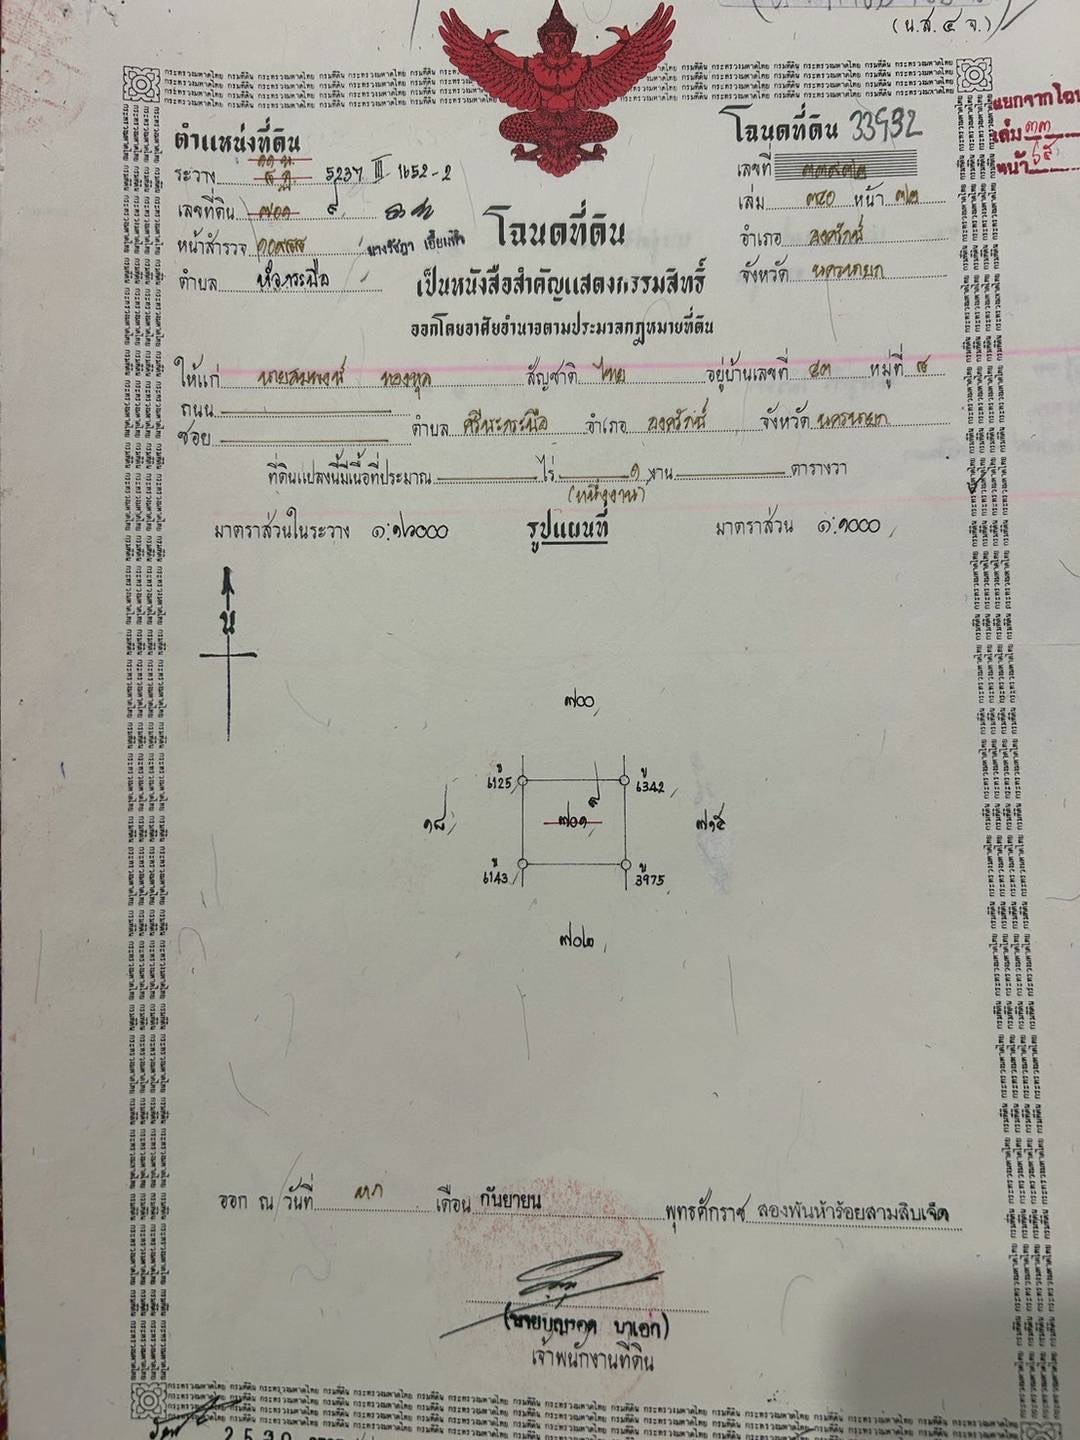 (น.ส. ๔ จ.)
แยกจากโฉน
เล่ม ๓๓
หน้า ๖๕
ตำแหน่งที่ดิน
ระวาง 5237 III 1652-2
เลขที่ดิน ๗๐๑ ๙
หน้าสำรวจ
ตำบล
โฉนดที่ดิน 33932
เลขที่ ๓๓๙๓๒
เล่ม ๓๔๐ หน้า ๓๒
อำเภอ องครักษ์
จังหวัด นครนายก
โฉนดที่ดิน
เป็นหนังสือสำคัญแสดงกรรมสิทธิ์
ออกโดยอาศัยอำนาจตามประมวลกฎหมายที่ดิน
ให้แก่ นายสมพงษ์ ทองพูล สัญชาติ ไทย อยู่บ้านเลขที่ ๔๓ หมู่ที่ ๘
ถนน
ซอย ตำบล ศรีษะกระบือ อำเภอ องครักษ์ จังหวัด นครนายก
ที่ดินแปลงนี้มีเนื้อที่ประมาณ ไร่ ๑ งาน ตารางวา
(หนึ่งงาน)
มาตราส่วนในระวาง รูปแผนที่ มาตราส่วน ๑:๑๐๐๐
น
๗๐๐
ข 6125 ข 6342
๑๘ ๗๐๑ ๙ ๗๑๕
ข 6143 ข 3975
๗๐๒
ออก ณ วันที่ เดือน กันยายน พุทธศักราช สองพันห้าร้อยสามสิบเจ็ด
(นายบุญรอด นาเอก)
เจ้าพนักงานที่ดิน
2530